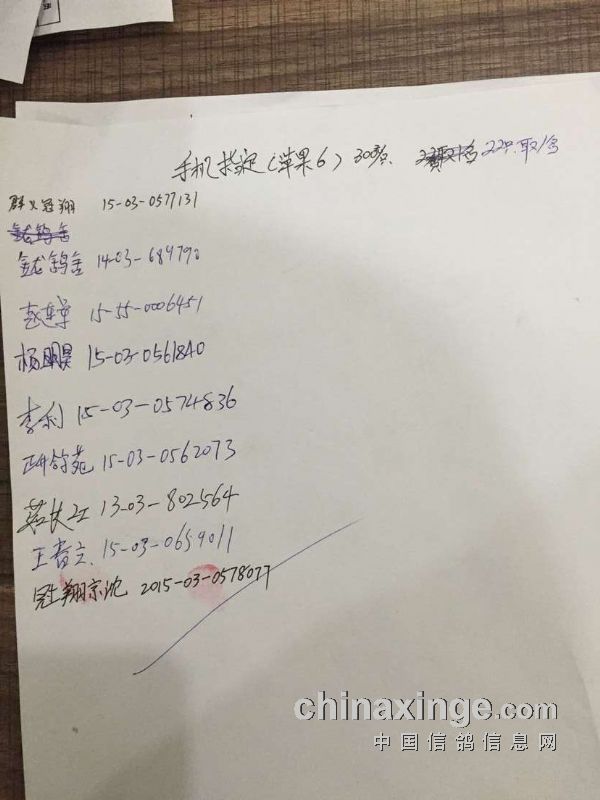 手机指定(苹果6) 300/名 22只取1名
群义冠翔 15-03-0577131
金龙鸽舍
金龙鸽舍 14-03-684790
赵连军 15-55-0006451
杨鹏昊 15-03-0561840
李利 15-03-0574836
15-03-0562073
13-03-802564
王 立 15-03-0659011
冠翔京沈 2015-03-0578077
chinaxinge.com
中国信鸽信息网